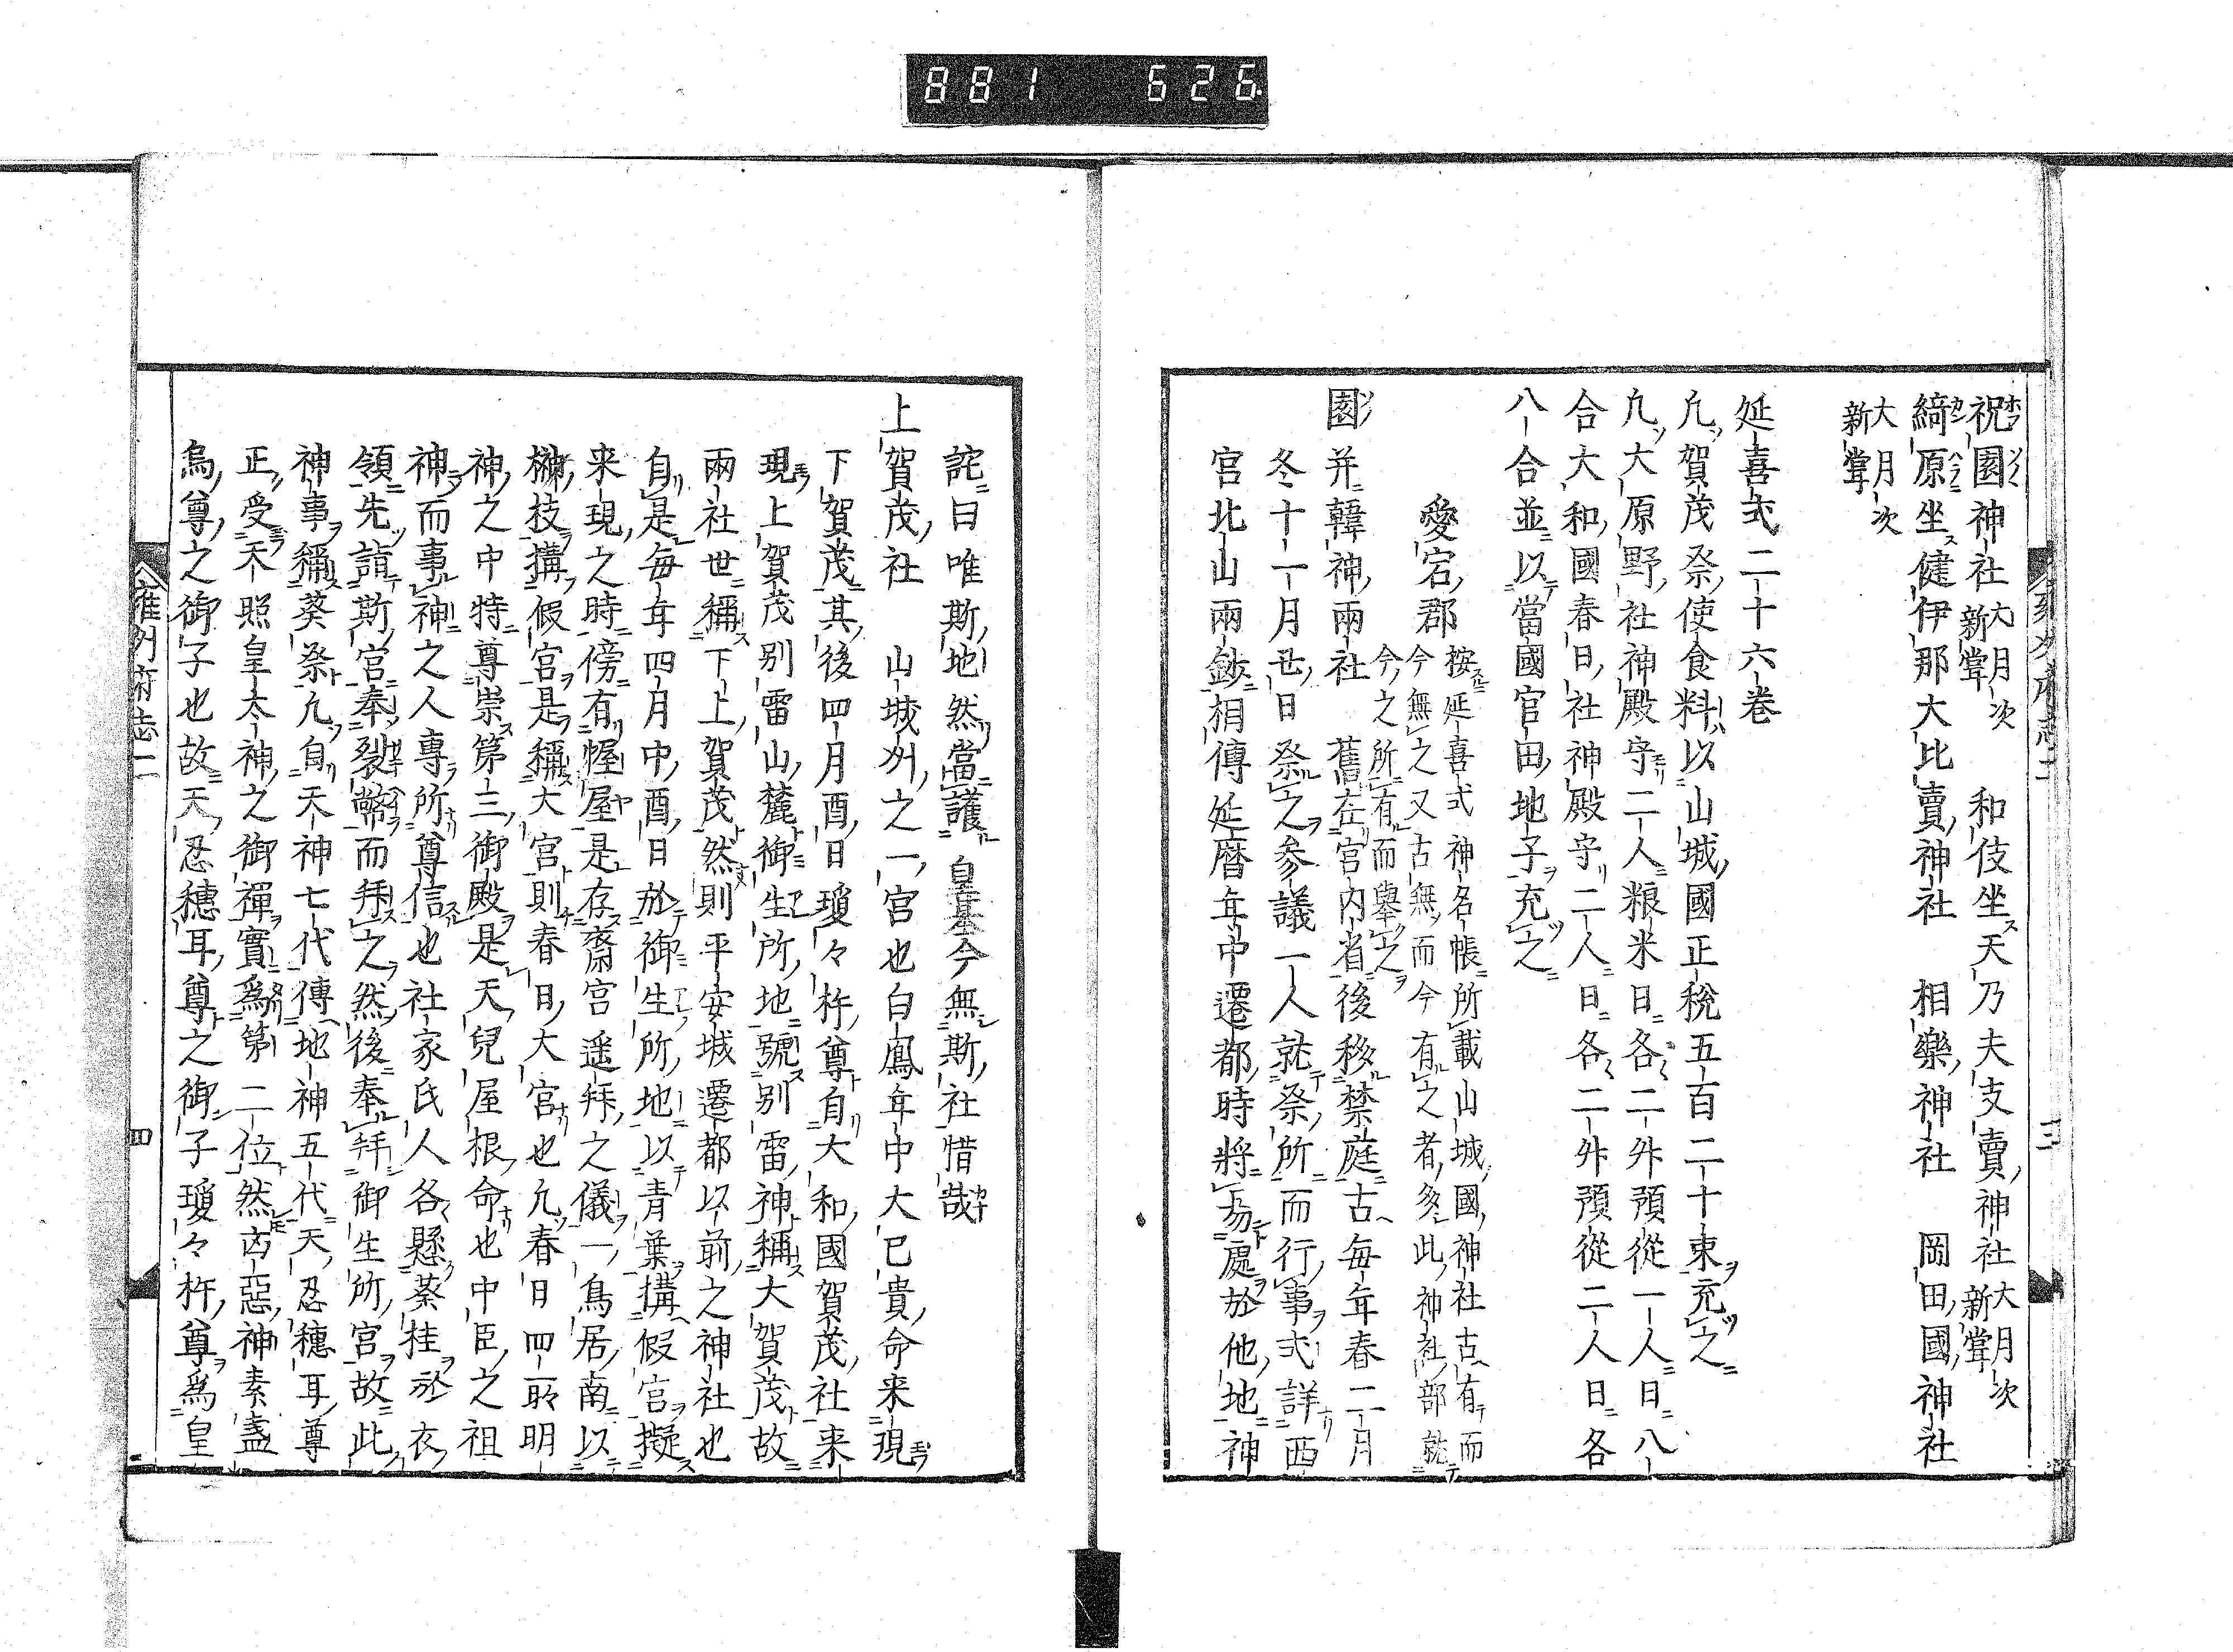 881 626
祝園神社大月次新甞 和伎坐天乃夫支賣神社大月次新甞
綺原坐健伊那大比賣神社 相樂神社 岡田國神社
大月次新甞
延喜式二十六卷
凢賀茂祭使食料以山城國正税五百二十束充之
凢大原野社神殿守二人粮米日各二升預從一人日八
合大和國春日社神殿守二人日各二升預從二人日各
八合並以當國官田地子充之
愛宕郡
按延喜式神名帳所載山城國神社古有而
今無之又古無而今有之者多此神社部就
今之所有而擧之
園并韓神兩社 舊在宮内省後移禁庭古每年春二月
冬十一月丑日祭之參議一人就祭所而行事式詳西
宮北山兩鈔相傳延暦年中遷都時將易處於他地神
雍州府志二 三
詫曰唯斯地然當護 皇基今無斯社惜哉
上賀茂社 山城州之一宮也白鳳年中大已貴命来現
下賀茂其後四月酉日瓊々杵尊自大和國賀茂社来
現上賀茂别雷山麓御生所地號别雷神稱大賀茂故
兩社世稱下上賀茂然則平安城遷都以前之神社也
自是每年四月中酉日於御生所地以青葉搆假宮擬
来現之時傍有幄屋是存齋宮遥拜之儀一鳥居南以
榊枝搆假宮是稱大宮則春日大宮也凢春日四所明
神之中特尊崇第三御殿是天兒屋根命也中臣之祖
神而事神之人專所尊信也社家氏人各懸葵桂於衣
領先詣斯宮奉裂幣而拜之然後奉拜御生所宮故此
神事稱葵祭凢自天神七代傳地神五代天忍穗耳尊
正受天照皇太神之御禪實爲第二位然凶惡神素盞
烏尊之御子也故天忍穗耳尊之御子瓊々杵尊爲皇
雍州府志二 四